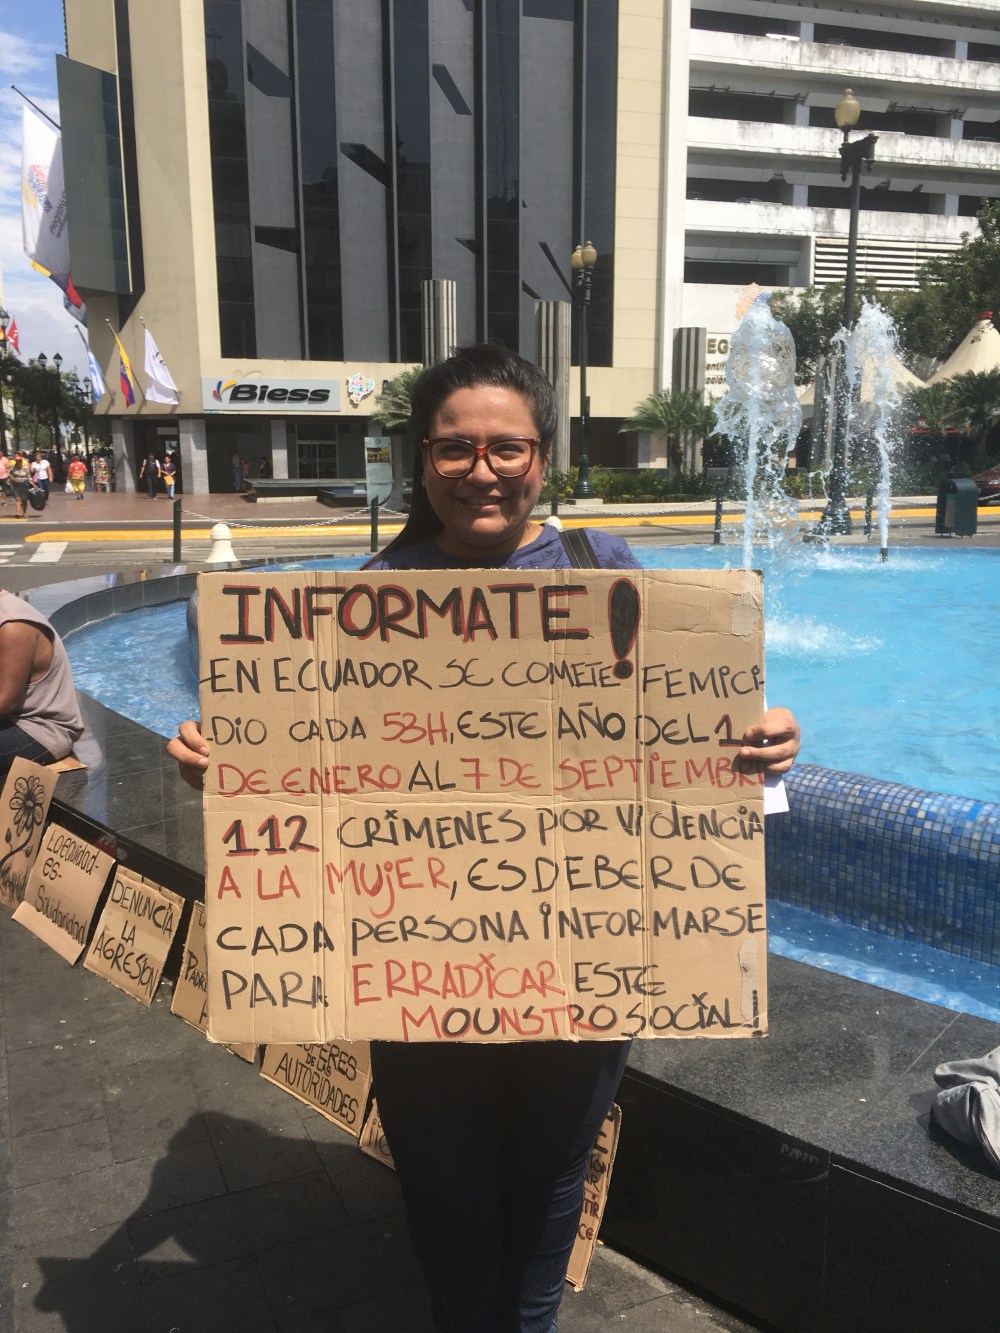 Biess
INFORMATE!
EN ECUADOR SE COMETE FEMICI
DIO CADA 53H, ESTE AÑO DEL 1
DE ENERO AL 7 DE SEPTIEMBRE
112 CRÍMENES POR VIOLENCIA
A LA MUJER, ES DEBER DE
CADA PERSONA INFORMARSE
PARA ERRADICAR ESTE
MOUNSTRO SOCIAL!
La equidad
es-
Solidaridad
DENUNCIA
LA
AGRESIÓN
DE LAS
AUTORIDADES